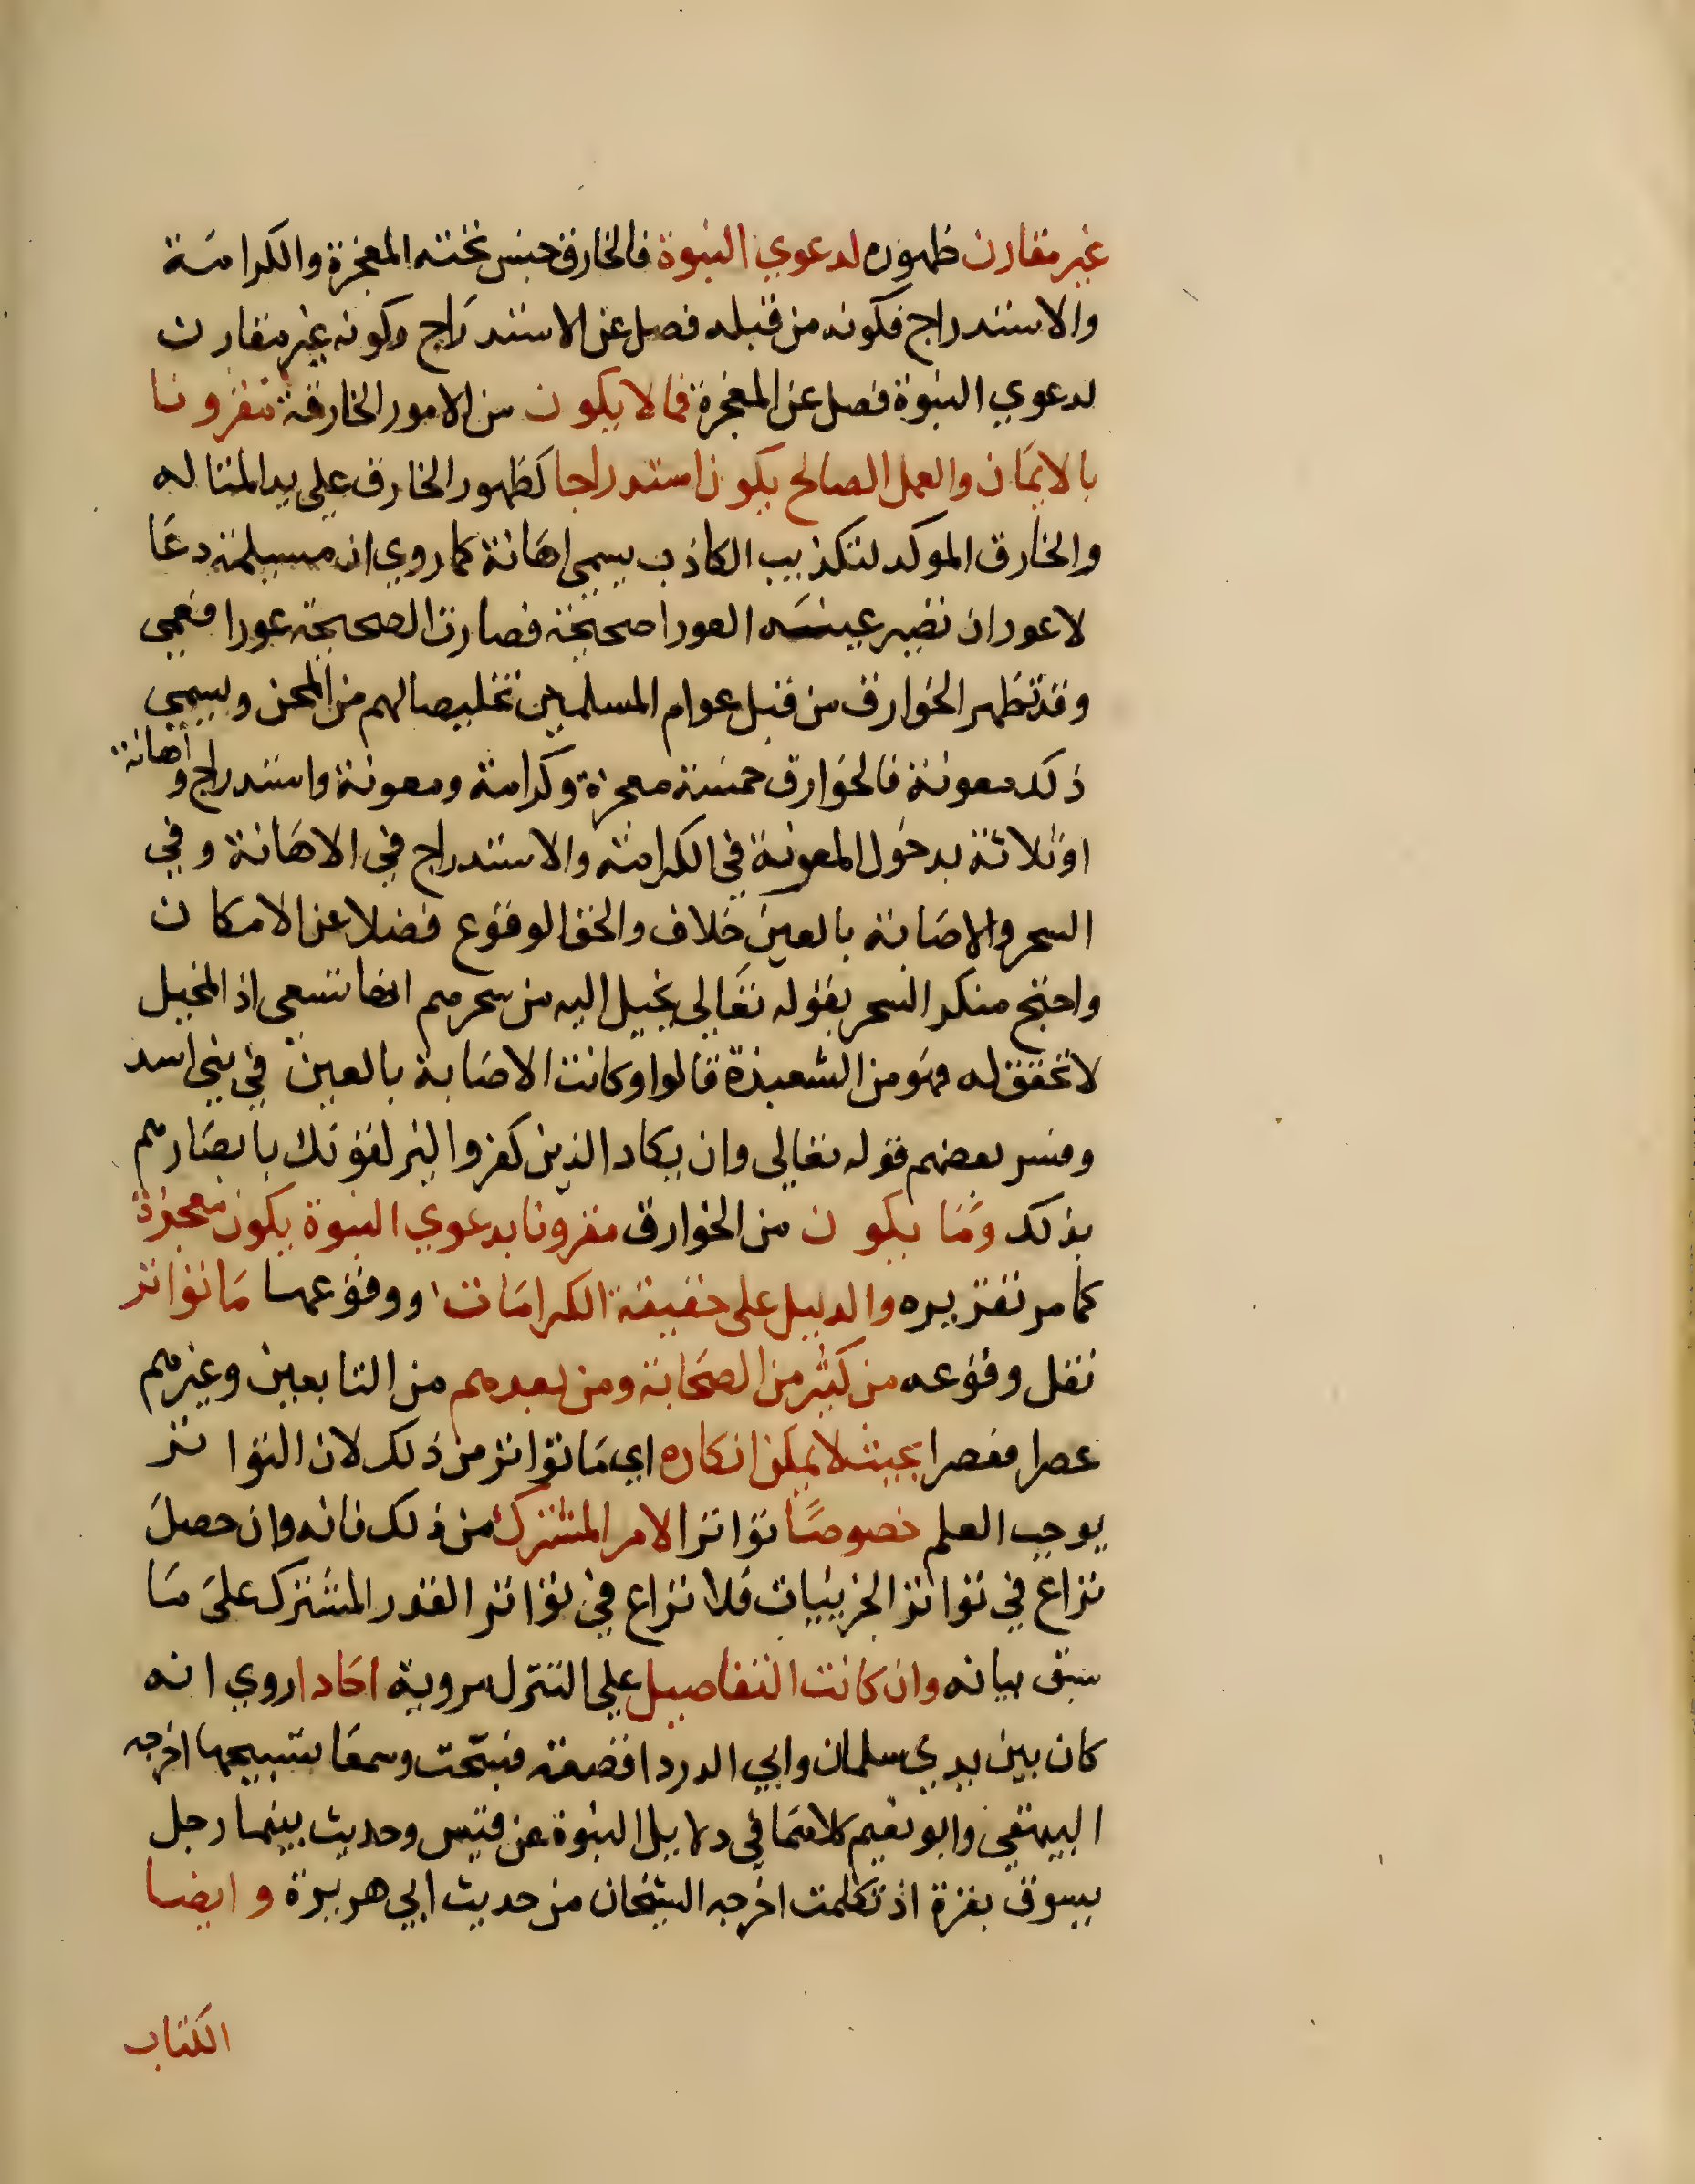 غير مقارن ظهوره لدعوي النبوة فالخارق جنس تحته المعجزة والكرامة
والاستدراج فكونه من قبله فصل عن الاستدراج وكونه غير مقارن
لدعوي النبوة فصل عن المعجزة فما لا يكون من الامور الخارقة مقرونا
بالايمان والعمل الصالح يكون استدراجا كظهور الخارق علي يد المتاله
والخارق الموكد لتكذيب الكاذب يسمي اهانة كما روي ان مسيلمة دعا
لاعور ان تصير عينه العورا صحيحة فصارت الصحيحة عورا فعمي
وقد تظهر الخوارق من قبل عوام المسلمين تخليصا لهم من المحن ويسمي
ذلك معونة فالخوارق خمسة معجزة وكرامة ومعونة واستدراج واهانة
او ثلاثة بدخول المعونة في الكرامة والاستدراج في الاهانة وفي
السحر والاصابة بالعين خلاف والحق الوقوع فضلا عن الامكان
واحتج منكر السحر بقوله تعالي يخيل اليه من سحرهم انها تسعي اذ المخيل
لا تحقق له فهو من الشعبذة قالوا وكانت الاصابة بالعين في بني اسد
وفسر بعضهم قوله تعالي وان يكاد الذين كفروا ليزلقونك بابصارهم
بذلك وما يكون من الخوارق مقرونا بدعوي النبوة يكون معجزة
كما مر تقريره والدليل علي حقيقة الكرامات ووقوعها ما تواتر
نقل وقوعه من كثير من الصحابة ومن بعدهم من التابعين وغيرهم
عصرا فعصرا بحيث لا يمكن انكاره اي ما تواتر من ذلك لان التواتر
يوجب العلم خصوصا تواتر الامر المشترك من ذلك فانه وان حصل
نزاع في تواتر الجزييات فلا نزاع في تواتر القدر المشترك علي ما
سبق بيانه وان كانت التفاصيل علي التنزل مروية احادا روي انه
كان بين يدي سلمان وابي الدردا قصعة فسبحت وسمعا تسبيحها اخرجه
البيهقي وابو نعيم كلاهما في دلايل النبوة عن قيس وحديث بينما رجل
يسوق بقرة اذ تكلمت اخرجه الشيخان من حديث ابي هريرة وايضا
الكتاب